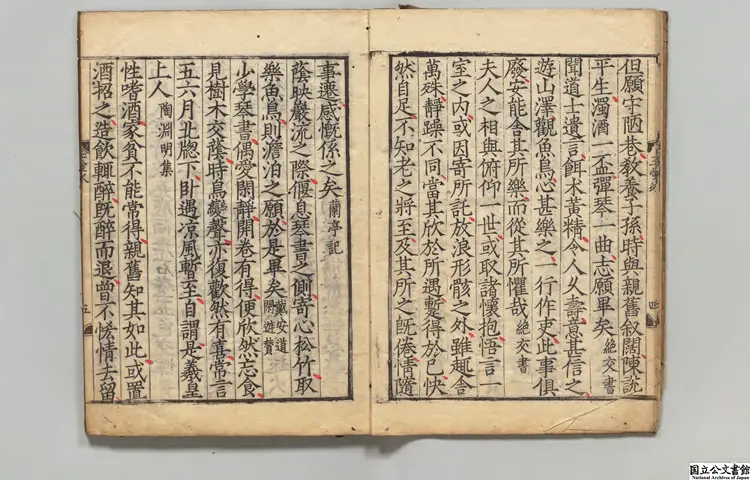 但願守陋巷教養子孫時與親舊叙闊陳說
平生濁酒一盃彈琴一曲志願畢矣 絶交書
聞道士遺言餌术黄精令人久壽意甚信之
遊山澤觀魚鳥心甚樂之一行作吏此事俱
廢安能舍其所樂而從其所懼哉 絶交書
夫人之相與俯仰一世或取諸懷抱悟言一
室之內或因寄所託放浪形骸之外雖趣舍
萬殊靜躁不同當其欣於所遇蹔得於己快
然自足不知老之將至及其所之旣倦情隨
四
事遷感慨係之矣 蘭亭記
蔭映巖流之際偃息琴書之側寄心松竹取
樂魚鳥則澹泊之願於是畢矣 戴安道閑遊贊
少學琴書偶愛閑靜開卷有得便欣然忘食
見樹木交蔭時鳥變聲亦復歡然有喜常言
五六月北窓下臥遇凉風暫至自謂是羲皇
上人 陶淵明集
性嗜酒家貧不能常得親舊知其如此或置
酒招之造飲輒醉旣醉而退曾不恡情去留
五
国立公文書館
National Archives of Japan